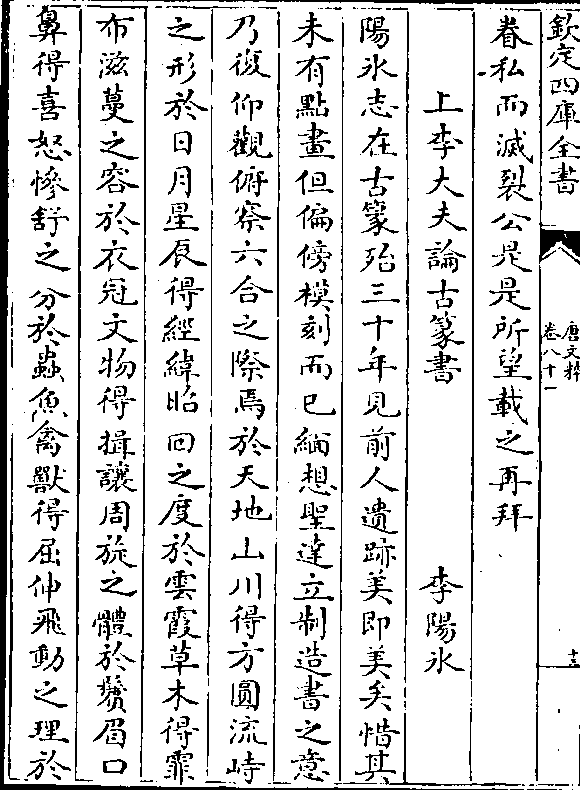 欽定四庫全書
唐文粹
卷八十一
十三
眷私而滅裂公是是所望載之再拜
上李大夫論古篆書 李陽冰
陽冰志在古篆殆三十年見前人遺跡美即美矣惜其
未有點畫但偏傍模刻而已緬想聖達立制造書之意
乃復仰觀俯察六合之際焉於天地山川得方圓流峙
之形於日月星辰得經緯昭回之度於雲霞草木得霏
布滋蔓之容於衣冠文物得揖讓周旋之體於鬚眉口
鼻得喜怒慘舒之分於蟲魚禽獸得屈伸飛動之理於